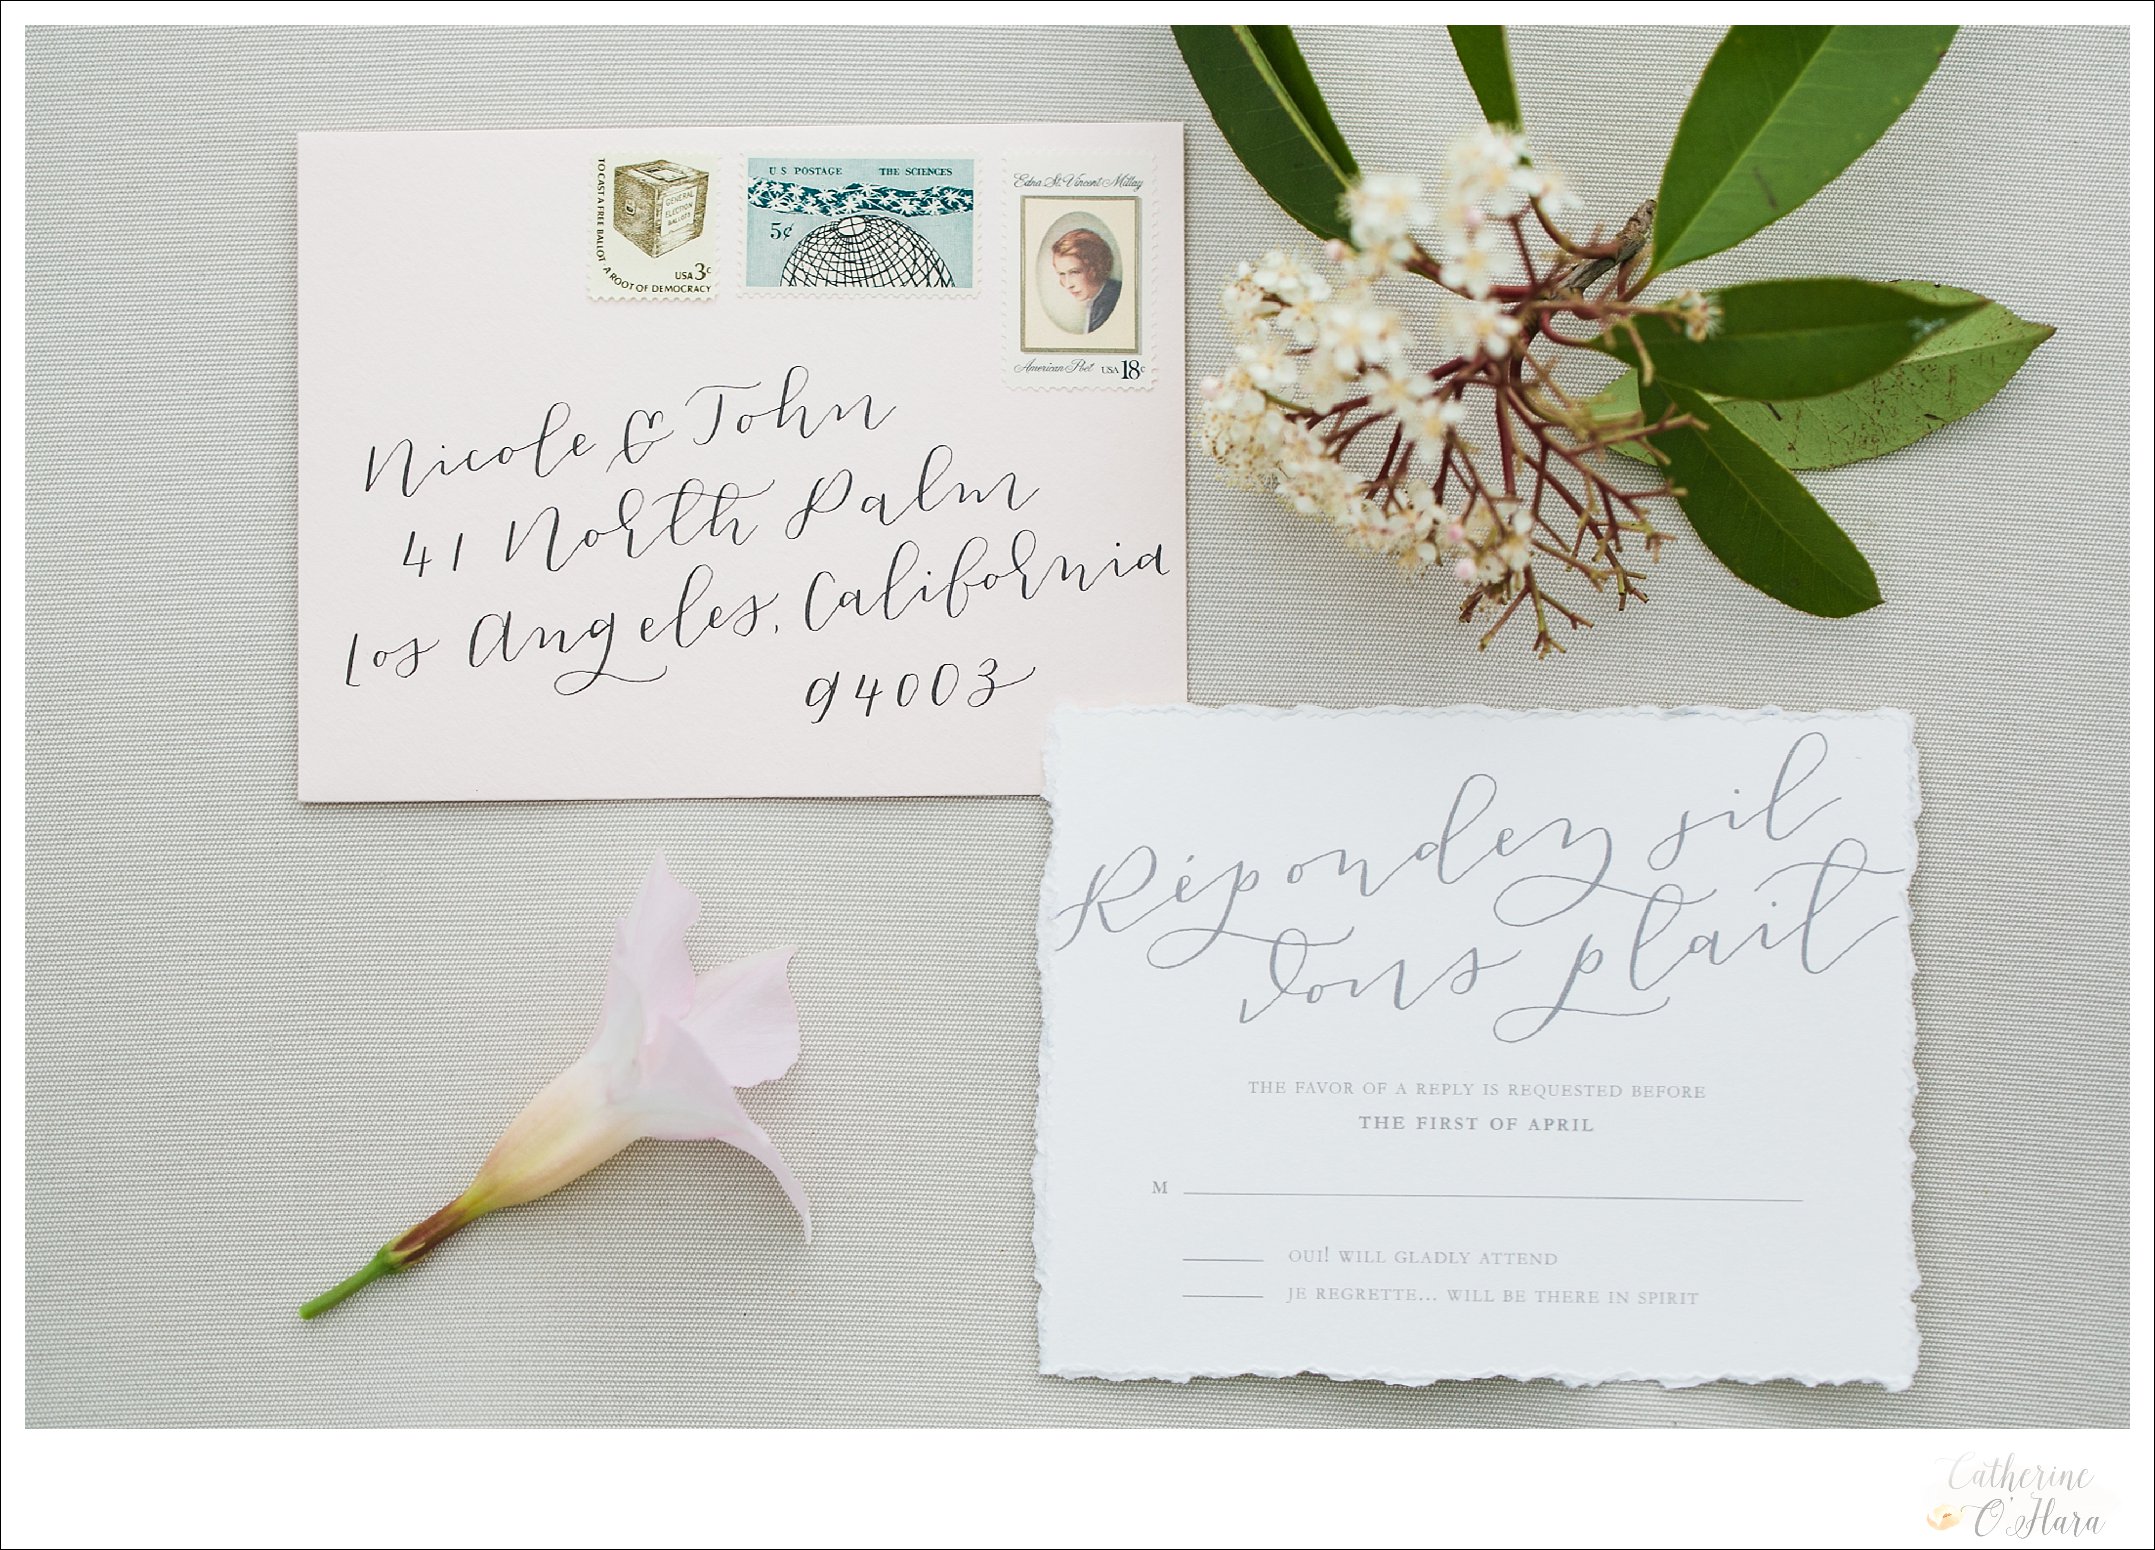 TO CAST A FREE BALLOT A ROOT OF DEMOCRACY
GENERAL
ELECTION
BALLOTS
USA 3c
U S POSTAGE THE SCIENCES
5¢
Edna St. Vincent Millay
American Poet USA 18c
Nicole & John
41 North Palm
Los Angeles, California
94003
Répondez sil
vous plait
THE FAVOR OF A REPLY IS REQUESTED BEFORE
THE FIRST OF APRIL
M
OUI! WILL GLADLY ATTEND
JE REGRETTE... WILL BE THERE IN SPIRIT
Catherine
O'Hara